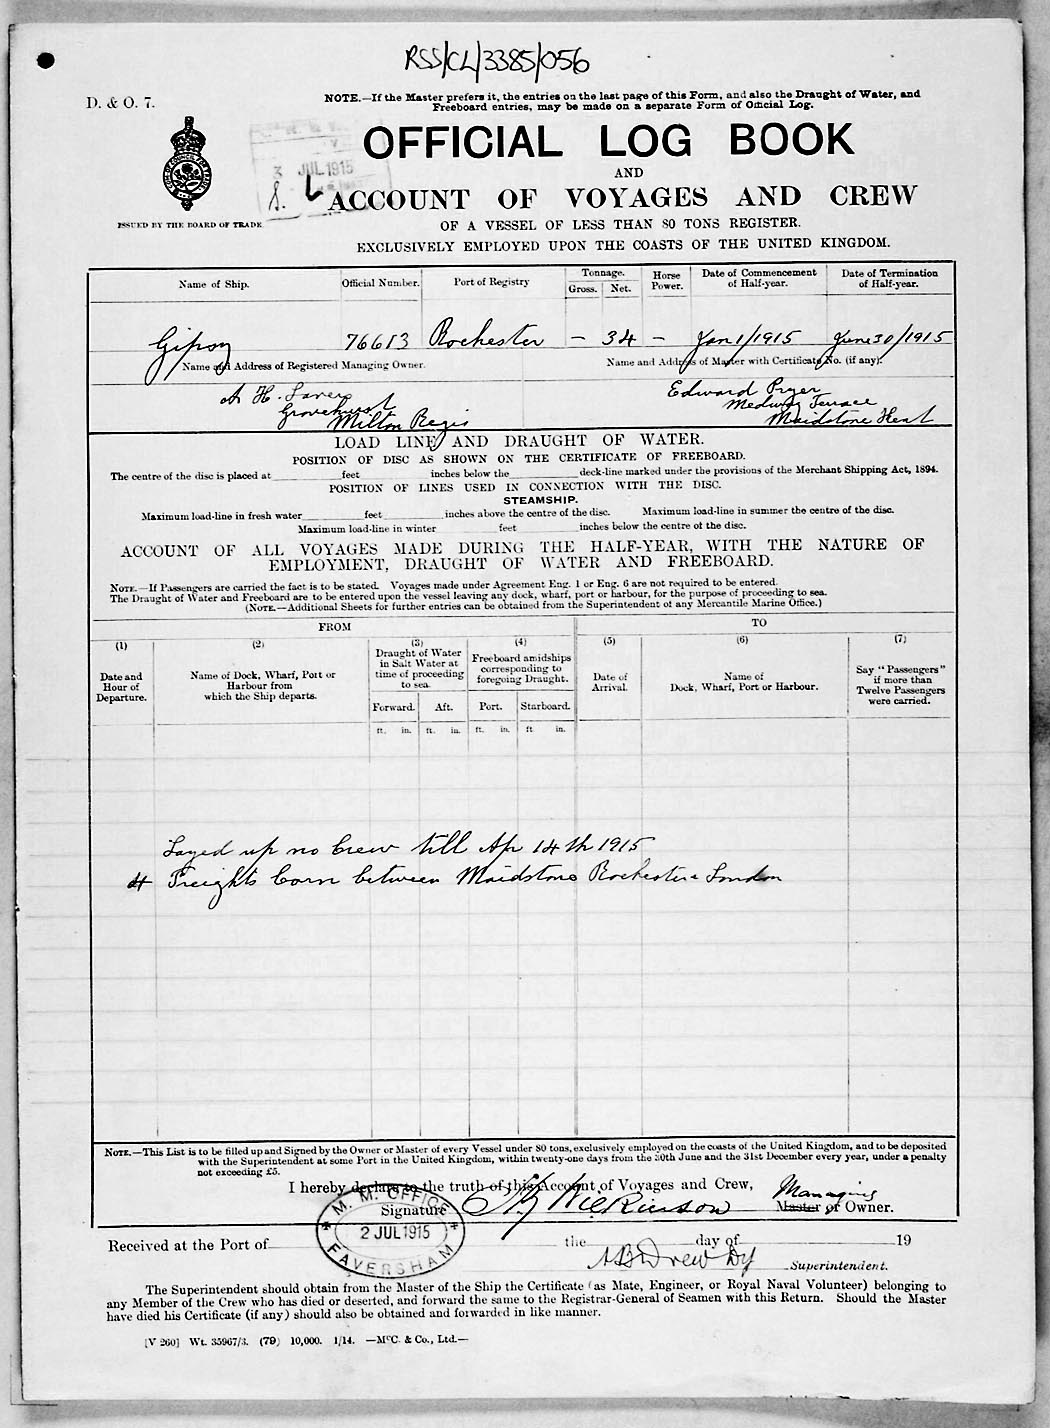 RSS/CL/3385/056
D. & O. 7.
NOTE.—If the Master prefers it, the entries on the last page of this Form, and also the Draught of Water, and
Freeboard entries, may be made on a separate Form of Official Log.
OFFICIAL LOG BOOK
AND
3 JUL 1915
ACCOUNT OF VOYAGES AND CREW
ISSUED BY THE BOARD OF TRADE.
OF A VESSEL OF LESS THAN 80 TONS REGISTER.
EXCLUSIVELY EMPLOYED UPON THE COASTS OF THE UNITED KINGDOM.
Name of Ship. Official Number. Port of Registry Tonnage. Horse Power. Date of Commencement of Half-year. Date of Termination of Half-year.
Gross. Net.
Gipsy 76613 Rochester — 34 — Jan 1/1915 June 30/1915
Name and Address of Registered Managing Owner. Name and Address of Master with Certificate No. (if any).
A H. Edward Pryer
Grovehurst Medway Terrace
Milton Regis Maidstone Kent
LOAD LINE AND DRAUGHT OF WATER.
POSITION OF DISC AS SHOWN ON THE CERTIFICATE OF FREEBOARD.
The centre of the disc is placed at feet inches below the deck-line marked under the provisions of the Merchant Shipping Act, 1894.
POSITION OF LINES USED IN CONNECTION WITH THE DISC.
STEAMSHIP.
Maximum load-line in fresh water feet inches above the centre of the disc. Maximum load-line in summer the centre of the disc.
Maximum load-line in winter feet inches below the centre of the disc.
ACCOUNT OF ALL VOYAGES MADE DURING THE HALF-YEAR, WITH THE NATURE OF
EMPLOYMENT, DRAUGHT OF WATER AND FREEBOARD.
NOTE.—If Passengers are carried the fact is to be stated. Voyages made under Agreement Eng. 1 or Eng. 6 are not required to be entered.
The Draught of Water and Freeboard are to be entered upon the vessel leaving any dock, wharf, port or harbour, for the purpose of proceeding to sea.
(NOTE.—Additional Sheets for further entries can be obtained from the Superintendent of any Mercantile Marine Office.)
FROM TO
(1) (2) (3) (4) (5) (6) (7)
Date and Hour of Departure. Name of Dock, Wharf, Port or Harbour from which the Ship departs. Draught of Water in Salt Water at time of proceeding to sea. Freeboard amidships corresponding to foregoing Draught. Date of Arrival. Name of Dock, Wharf, Port or Harbour. Say "Passengers" if more than Twelve Passengers were carried.
Forward. Aft. Port. Starboard.
ft. in. ft. in. ft. in. ft. in.
Layed up no Crew till Ap 14th 1915
4 Freights Corn between Maidstone Rochester & London
NOTE.—This List is to be filled up and Signed by the Owner or Master of every Vessel under 80 tons, exclusively employed on the coasts of the United Kingdom, and to be deposited
with the Superintendent at some Port in the United Kingdom, within twenty-one days from the 30th June and the 31st December every year, under a penalty
not exceeding £5.
I hereby declare to the truth of this Account of Voyages and Crew,
Managing
Signature Wilkinson Master or Owner.
M. M. OFFICE
2 JUL 1915
FAVERSHAM
Received at the Port of the day of 19
Superintendent.
The Superintendent should obtain from the Master of the Ship the Certificate (as Mate, Engineer, or Royal Naval Volunteer) belonging to
any Member of the Crew who has died or deserted, and forward the same to the Registrar-General of Seamen with this Return. Should the Master
have died his Certificate (if any) should also be obtained and forwarded in like manner.
[V 260] Wt. 35967/3. (79) 10,000. 1/14. —McC. & Co., Ltd.—